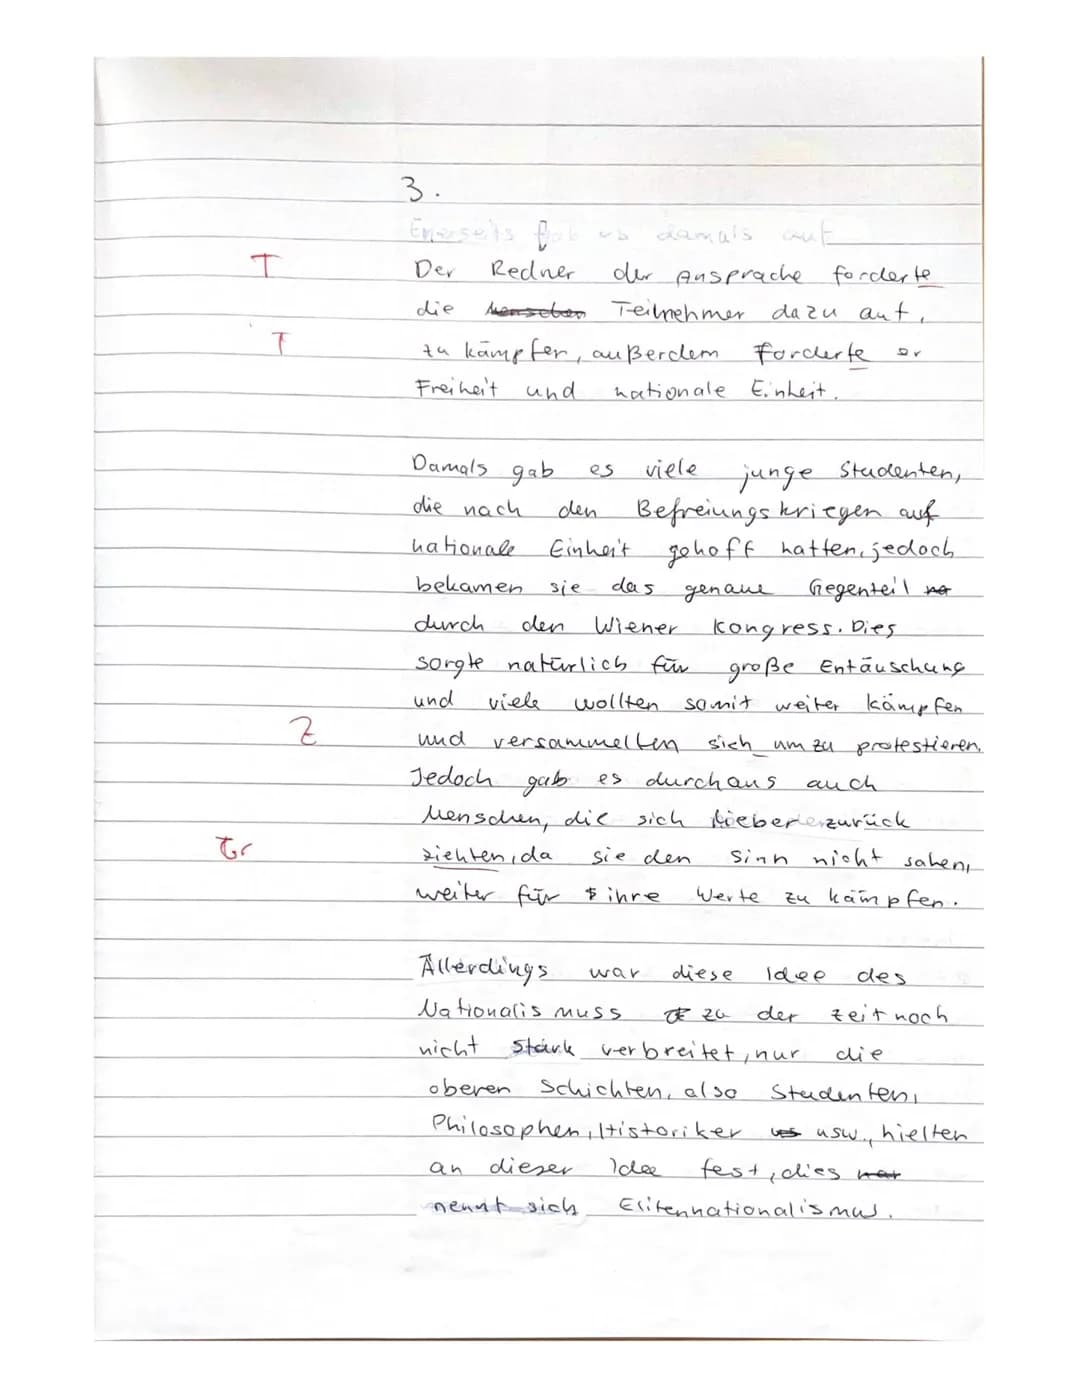 3.
Einerseits gab es damals auf
T Der Redner der Ansprache forderte
die Menschen Teilnehmer dazu auf,
T zu kämpfen, außerdem forderte er
Freiheit und nationale Einheit.
Damals gab es viele junge Studenten,
die nach den Befreiungskriegen auf
nationale Einheit gehofft hatten, jedoch
bekamen sie das genaue Gegenteil
durch den Wiener Kongress. Dies
sorgte natürlich für große Entäuschung
und viele wollten somit weiter kämpfen
Z und versammelten sich um zu protestieren.
Jedoch gab es durchaus auch
Menschen, die sich lieber zurück
Gr ziehten, da sie den Sinn nicht sahen,
weiter für ihre Werte zu kämpfen.
Allerdings war diese Idee des
Nationalismuss zu der Zeit noch
nicht stark verbreitet, nur die
oberen Schichten, also Studenten,
Philosophen, Historiker usw., hielten
an dieser Idee fest, dies
nennt sich Elitennationalismus.